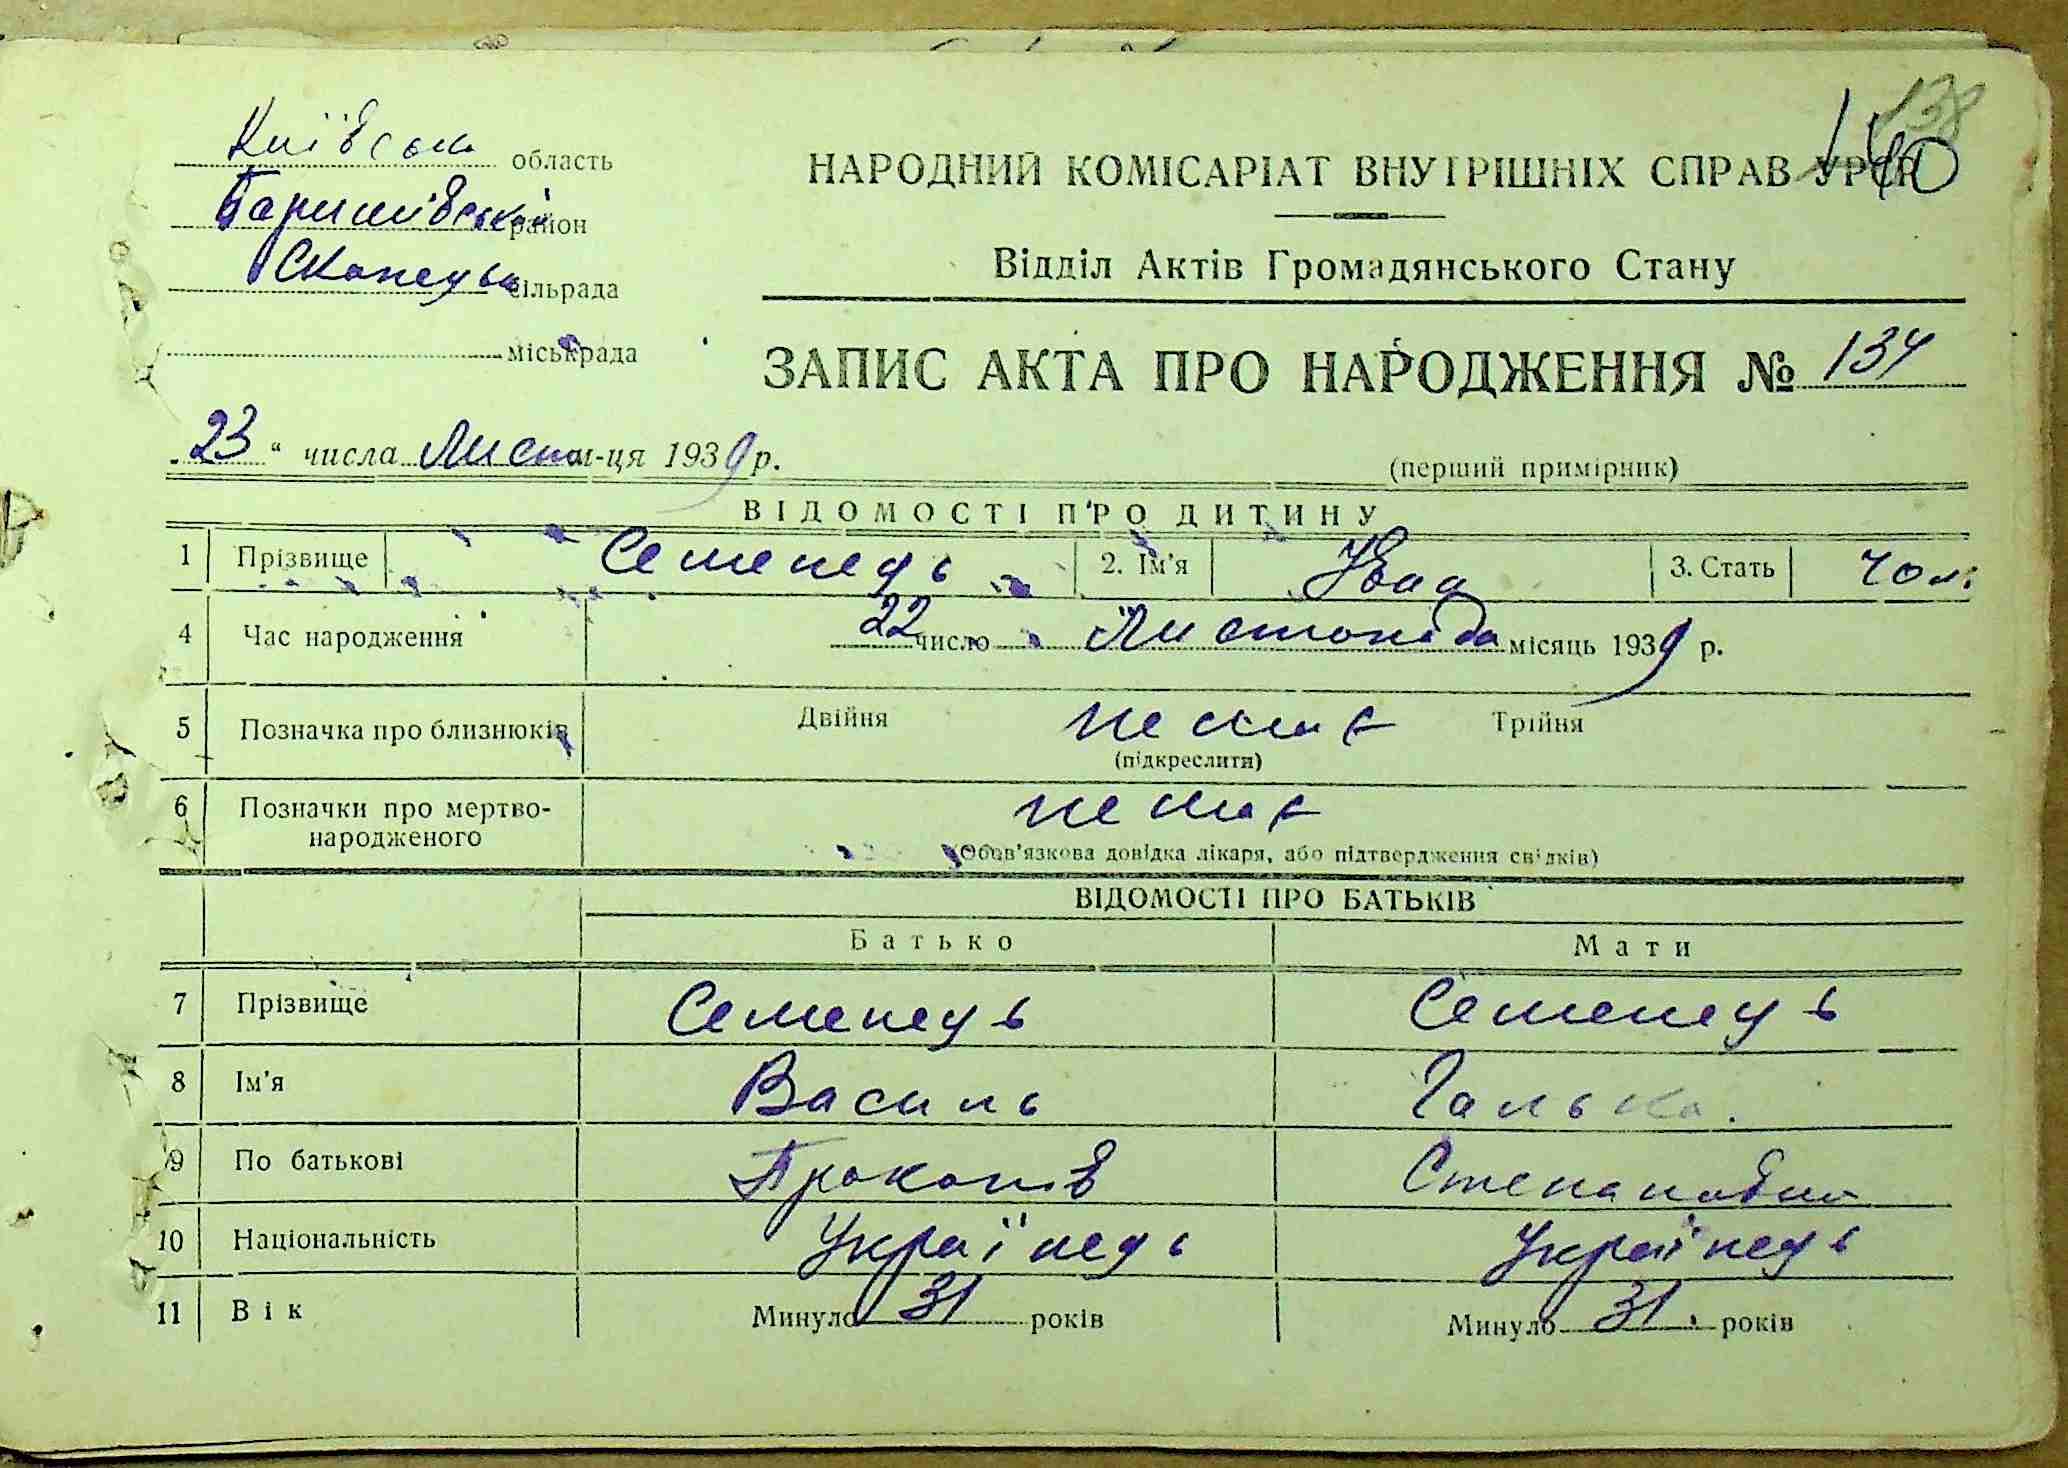 138
140
Київська область
НАРОДНИЙ КОМІСАРІАТ ВНУТРІШНІХ СПРАВ УРСР
Баришівський район
Відділ Актів Громадянського Стану
Скопецька сільрада
міськрада
ЗАПИС АКТА ПРО НАРОДЖЕННЯ № 134
„23“ числа Листоп м-ця 1939 р.
(перший примірник)
ВІДОМОСТІ ПРО ДИТИНУ
1 Прізвище Семенець 2. Ім'я Іван 3. Стать чол.
4 Час народження 22 число Листопада місяць 1939 р.
5 Позначка про близнюків Двійня немає Трійня
(підкреслити)
6 Позначки про мертво-
народженого немає
(Обов'язкова довідка лікаря, або підтвердження свідків)
ВІДОМОСТІ ПРО БАТЬКІВ
Батько Мати
7 Прізвище Семенець Семенець
8 Ім'я Василь Галька.
9 По батькові Прокопів Степановна
10 Національність Українець Українець
11 Вік Минуло 31 років Минуло 31. років